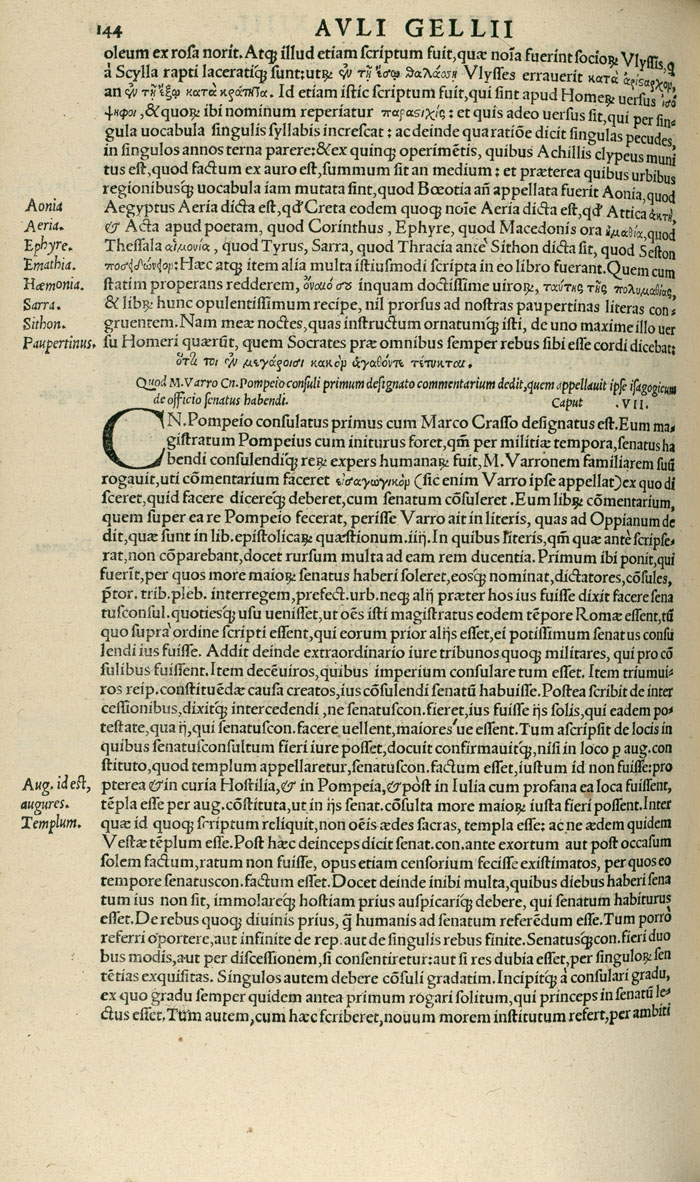 144
AVLI GELLII
oleum ex rosa norit. Atq; illud etiam scriptum fuit, quæ noĩa fuerint socioꝝ Vlyssis, q
à Scylla rapti laceratiq; sunt: utꝝ ἐν τῇ ἔσω θαλάσσῃ Vlysses errauerit κατὰ ἀρίσαρχον,
an ἐν τῇ ἔξω κατὰ κράτητα. Id etiam istic scriptum fuit, qui sint apud Homeꝝ uersus ἰσό
ψηφοι, & quoꝝ ibi nominum reperiatur παραστιχίς: et quis adeo uersus sit, qui per sin-
gula uocabula singulis syllabis increscat: ac deinde qua ratiõe dicit singulas pecudes,
in singulos annos terna parere: & ex quinq; operimẽtis, quibus Achillis clypeus muni
tus est, quod factum ex auro est, summum sit an medium: et præterea quibus urbibus
regionibusq; uocabula iam mutata sint, quod Bœotia añ appellata fuerit Aonia, quod
Aonia
Aegyptus Aeria dicta est, qđ Creta eodem quoq; noĩe Aeria dicta est, qđ Attica ἀκτὴ,
Aeria.
& Acta apud poetam, quod Corinthus, Ephyre, quod Macedonis ora ἠμαθία, quod
Ephyre.
Thessala αἱμονία, quod Tyrus, Sarra, quod Thracia antè Sithon dicta sit, quod Seston
Emathia.
ποσειδώνιον: Hæc atq; item alia multa istiusmodi scripta in eo libro fuerant. Quem cum
Hæmonia.
statim properans redderem, ὀναιό σο inquam doctissime uiroꝝ, ταύτης τῆς πολυμαθίας,
Sarra.
& libꝝ hunc opulentissimum recipe, nil prorsus ad nostras paupertinas literas con-
Sithon.
gruentem. Nam meæ noctes, quas instructum ornatumq; isti, de uno maxime illo uer
Paupertinus.
su Homeri quærũt, quem Socrates præ omnibus semper rebus sibi esse cordi dicebat:
ὅτα τοι ἐν μεγάροισι κακὸν ἀγαθόντε τέτυκται.
Quod M. Varro Cn. Pompeio consuli primum designato commentarium dedit, quem appellauit ipse isagogicum
de officio senatus habendi. Caput .VII.
CN. Pompeio consulatus primus cum Marco Crasso designatus est. Eum ma-
gistratum Pompeius cum initurus foret, qm̃ per militiæ tempora, senatus ha
bendi consulendiq; reꝝ expers humanaꝝ fuit, M. Varronem familiarem suũ
rogauit, uti cõmentarium faceret εἰσαγωγικὸν (sic enim Varro ipse appellat) ex quo di
sceret, quid facere dicereq; deberet, cum senatum cõsuleret. Eum libꝝ cõmentarium,
quem super ea re Pompeio fecerat, perisse Varro ait in literis, quas ad Oppianum de
dit, quæ sunt in lib. epistolicaꝝ quæstionum .iiij. In quibus literis, qm̃ quæ antè scripse-
rat, non cõparebant, docet rursum multa ad eam rem ducentia. Primum ibi ponit, qui
fuerĩt, per quos more maioꝝ senatus haberi soleret, eosq; nominat, dictatores, cõsules,
p̃tor. trib. pleb. interregem, prefect. urb. neq; alij præter hos ius fuisse dixit facere sena
tusconsul. quotiesq; usu uenisset, ut oẽs isti magistratus eodem tẽpore Romæ essent, tũ
quo supra ordine scripti essent, qui eorum prior alijs esset, ei potissimum senatus consu
lendi ius fuisse. Addit deinde extraordinario iure tribunos quoq; militares, qui pro cõ
sulibus fuissent. Item decẽuiros, quibus imperium consulare tum esset. Item triumui-
ros reip. constituẽdæ causa creatos, ius cõsulendi senatũ habuisse. Postea scribit de inter
cessionibus, dixitq; intercedendi, ne senatuscon. fieret, ius fuisse ijs solis, qui eadem po-
testate, qua ij, qui senatuscon. facere uellent, maiores ue essent. Tum ascripsit de locis in
quibus senatusconsultum fieri iure posset, docuit confirmauitq;, nisi in loco p aug. con
stituto, quod templum appellaretur, senatuscon. factum esset, iustum id non fuisse: pro
Aug. id est,
pterea & in curia Hostilia, & in Pompeia, & pòst in Iulia cum profana ea loca fuissent,
augures.
tẽpla esse per aug. cõstituta, ut in ijs senat. cõsulta more maioꝝ iusta fieri possent. Inter
Templum.
quæ id quoq; scriptum reliquit, non oẽis ædes sacras, templa esse: ac ne ædem quidem
Vestæ tẽplum esse. Post hæc deinceps dicit senat. con. ante exortum aut post occasum
solem factum, ratum non fuisse, opus etiam censorium fecisse existimatos, per quos eo
tempore senatuscon. factum esset. Docet deinde inibi multa, quibus diebus haberi sena
tum ius non sit, immolareq; hostiam prius auspicariq; debere, qui senatum habiturus
esset. De rebus quoq; diuinis prius, q̃ humanis ad senatum referẽdum esse. Tum porrò
referri oportere, aut infinite de rep. aut de singulis rebus finite. Senatusq; con. fieri duo
bus modis, aut per discessionem, si consentiretur: aut si res dubia esset, per singuloꝝ sen
tẽtias exquisitas. Singulos autem debere cõsuli gradatim. Incipitq; à consulari gradu,
ex quo gradu semper quidem antea primum rogari solitum, qui princeps in senatũ le-
ctus esset. Tum autem, cum hæc scriberet, nouum morem institutum refert, per ambiti